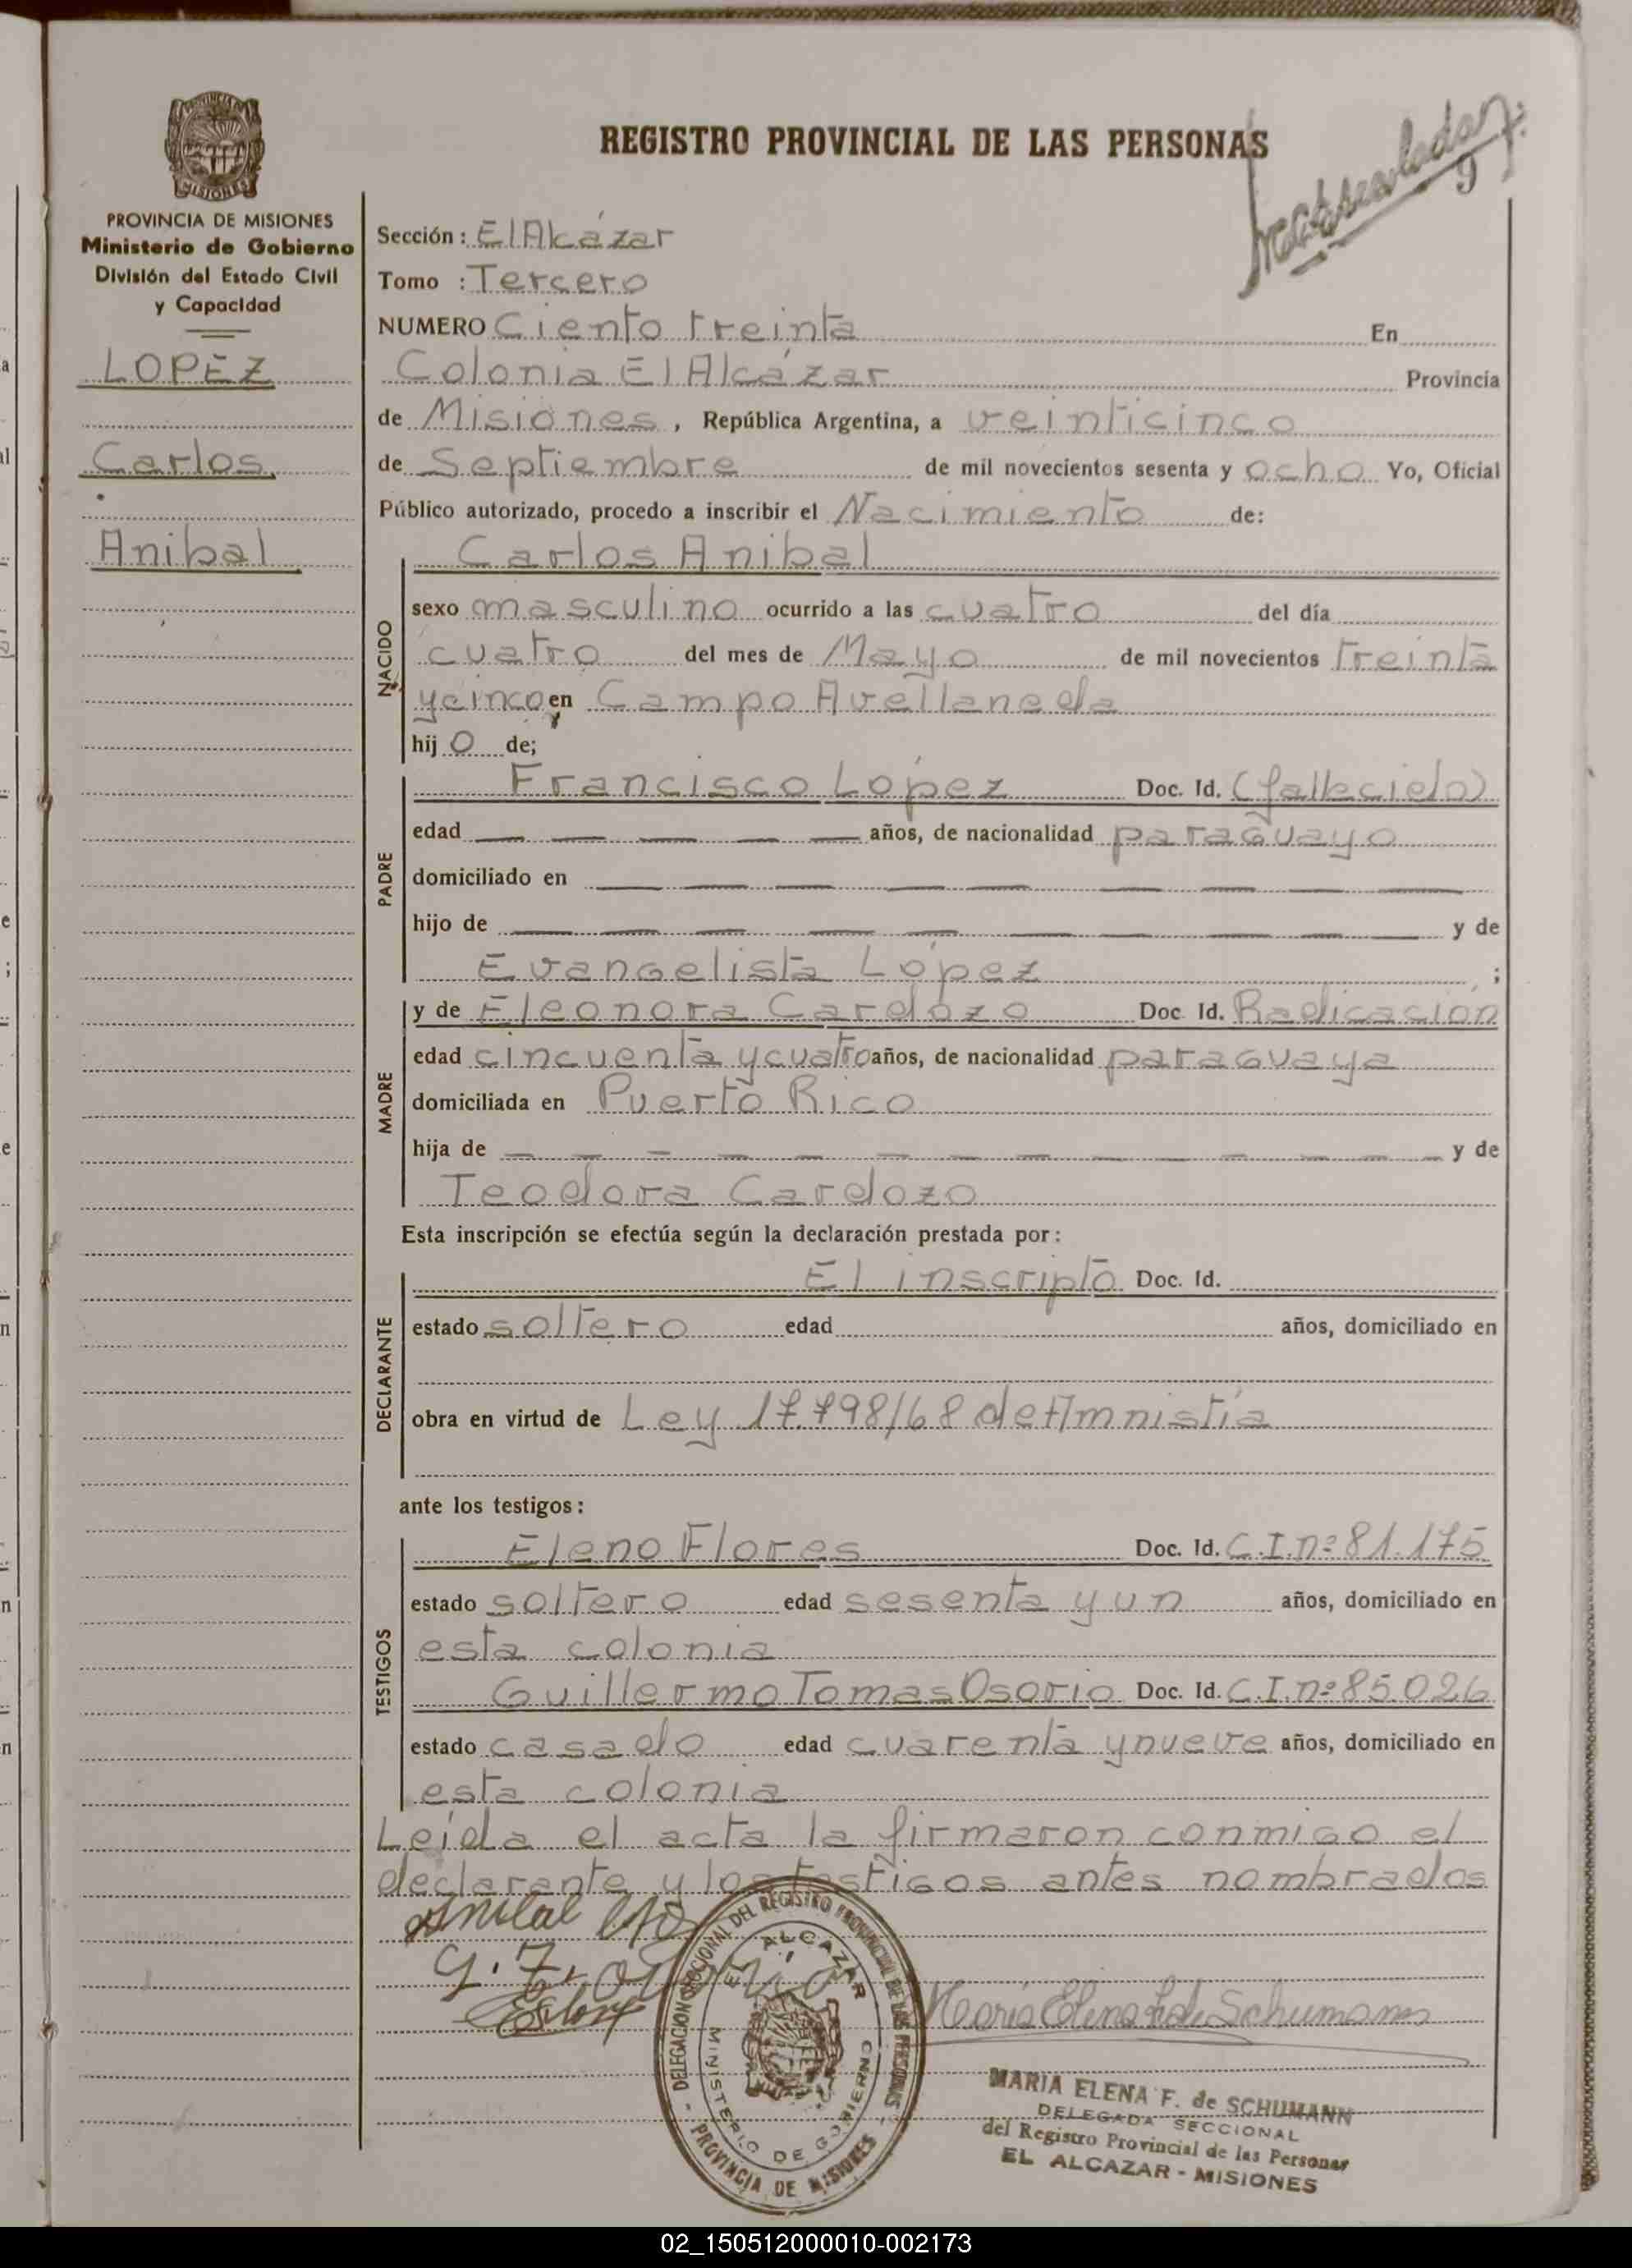 REGISTRO PROVINCIAL DE LAS PERSONAS
MISIONES
PROVINCIA DE MISIONES
Ministerio de Gobierno
División del Estado Civil
y Capacidad
LOPEZ
Carlos
Anibal
Sección: El Alcázar
Tomo : Tercero
NUMERO Ciento treinta En
Colonia El Alcázar Provincia
de Misiones, República Argentina, a veinticinco
de Septiembre de mil novecientos sesenta y ocho Yo, Oficial
Público autorizado, procedo a inscribir el Nacimiento de:
NACIDO
Carlos Anibal
sexo masculino ocurrido a las cuatro del día
cuatro del mes de Mayo de mil novecientos treinta
y cinco en Campo Avellaneda
hijo de;
PADRE
Francisco López Doc. Id. (fallecido)
edad — — — — — años, de nacionalidad paraguayo
domiciliado en — — — — — — — — —
hijo de — — — — — — — — — y de
Evangelista López ;
MADRE
y de Eleonora Cardozo Doc. Id. Radicación
edad cincuenta y cuatro años, de nacionalidad paraguaya
domiciliada en Puerto Rico
hija de — — — — — — — — — — — — — y de
Teodora Cardozo
Esta inscripción se efectúa según la declaración prestada por:
DECLARANTE
El inscripto Doc. Id.
estado soltero edad años, domiciliado en
obra en virtud de Ley 17.798/68 de Amnistía
ante los testigos:
TESTIGOS
Eleno Flores Doc. Id. C.I.nº 81.175
estado soltero edad sesenta y un años, domiciliado en
esta colonia
Guillermo Tomas Osorio Doc. Id. C.I.nº 85.026
estado casado edad cuarenta y nueve años, domiciliado en
esta colonia
Leída el acta la firmaron conmigo el
declarante y los testigos antes nombrados
DELEGACION SECCIONAL DEL REGISTRO PROVINCIAL DE LAS PERSONAS
EL ALCAZAR
MINISTERIO DE GOBIERNO
- PROVINCIA DE MISIONES -
MARIA ELENA F. de SCHUMANN
DELEGADA SECCIONAL
del Registro Provincial de las Personas
EL ALCAZAR - MISIONES
02_150512000010-002173